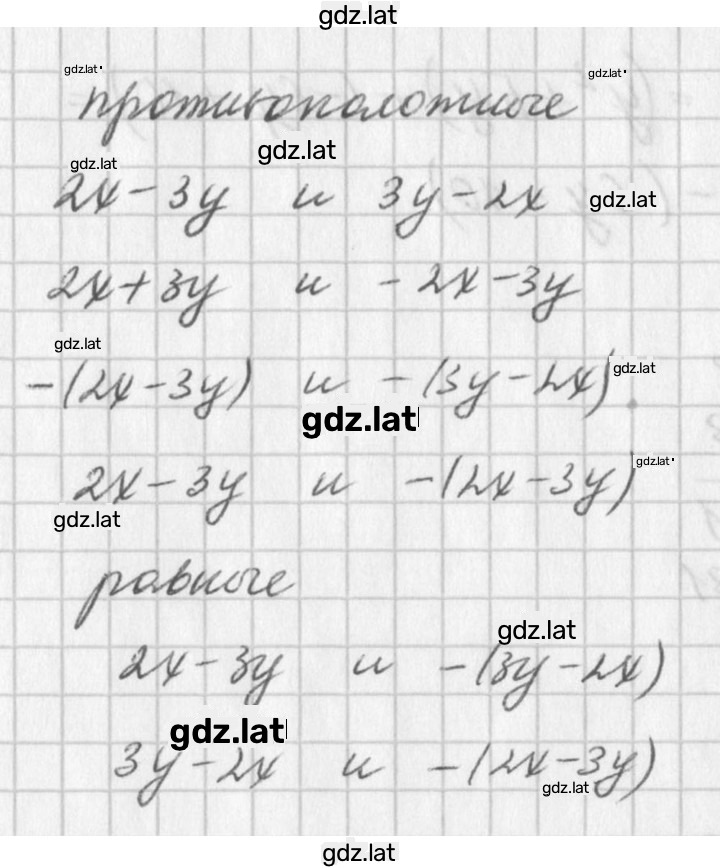 gdz.lat
gdz.lat gdz.lat
противоположные
gdz.lat gdz.lat
2x - 3y и 3y - 2x gdz.lat
2x + 3y и - 2x - 3y
gdz.lat
-(2x - 3y) и -(3y - 2x) gdz.lat
gdz.lat
2x - 3y и -(2x - 3y) gdz.lat
gdz.lat
равные
gdz.lat
2x - 3y и -(3y - 2x)
gdz.lat
3y - 2x и -(2x - 3y)
gdz.lat
gdz.lat